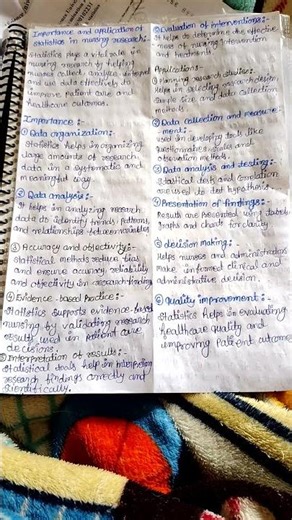 Importance and application of
statistics in nursing research:-
Statistics plays a vital role in
nursing research by helping
nurses collect, analyse, interpret
and use data effectively to
improve patient care and
healthcare outcomes.
Importance :-
① Data organization:-
Statistics helps in organizing
large amounts of research
data in a systematic and
meaningful way.
② Data analysis:-
It helps in analyzing research
data to identify trends, patterns,
and relationships between variables
③ Accuracy and objectivity:-
Statistical methods reduce bias
and ensure accuracy, reliability
and objectivity in research findings
④ Evidence-based practice:-
Statistics supports evidence-based
nursing by validating research
results used in patient care
decisions.
⑤ Interpretation of results:-
Statistical tools help in interpreting
research findings correctly and
scientifically.
⑥ Evaluation of interventions:-
It helps to determine the effective
ness of nursing intervention
and treatments.
Applications:-
① Planning research studies:-
Helps in selecting research design,
sample size and data collection
methods.
② Data collection and measure
ment:-
used in developing tools like
questionnaires, scales and
observation methods.
③ Data analysis and testing:-
Statistical tests and correlation
are used to test hypothesis
④ Presentation of findings:-
Results are presented using tables,
graphs and charts for clarity.
⑤ decision making:-
Helps nurses and administrators
make informed clinical and
administrative decision.
⑥ Quality improvement:-
Statistics helps in evaluating
healthcare quality and
improving patient outcomes